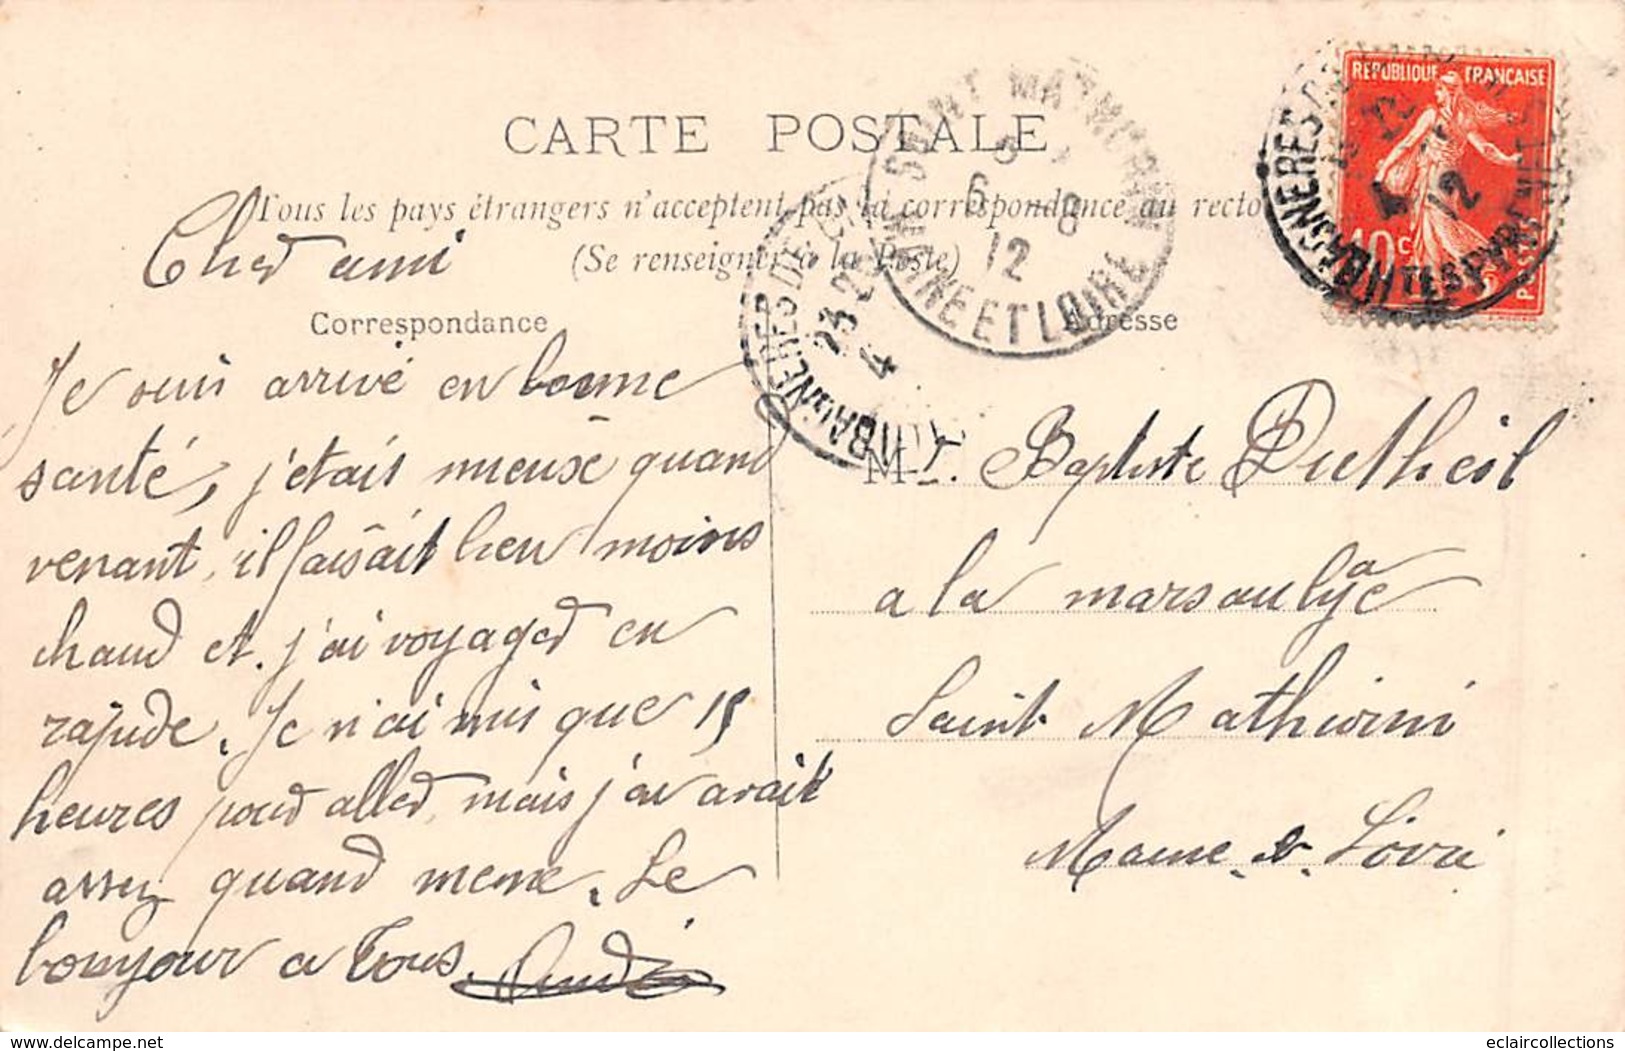 CARTE POSTALE
Tous les pays étrangers n'acceptent pas la correspondance au recto
(Se renseigner à la Poste)
Correspondance
Adresse
REPUBLIQUE FRANÇAISE
10 c
POSTES
SAINT MATHURIN
MAINE ET LOIRE
6 - 8
12
BAGNERES DE
23 25
4
BAGNERES
HTES PYRENEES
4
12
Cher ami
Je suis arrivé en bonne
santé, j'etais mieux quand
venant, il faisait bien moins
chaud et j'ai voyager en
rapide. Je n'ai mis que 15
heures pour aller, mais j'en avait
assez quand meme. Le
bonjour a tous.
André
Mr. Baptiste Dutheil
a la marsaulaye
Saint Mathurin
Maine & Loire
Delcampe.net
eclaircollections